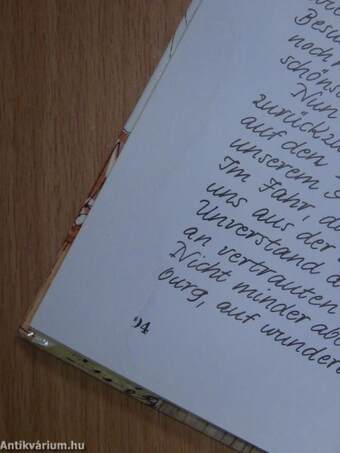 Besu
noch
schöns
Nun
zurückzu
auf den
unserem
Im Jahr, da
uns aus der
Unverstand
an vertrauten
Nicht minder ab
burg, auf wunder
'94
Antikvárium.hu